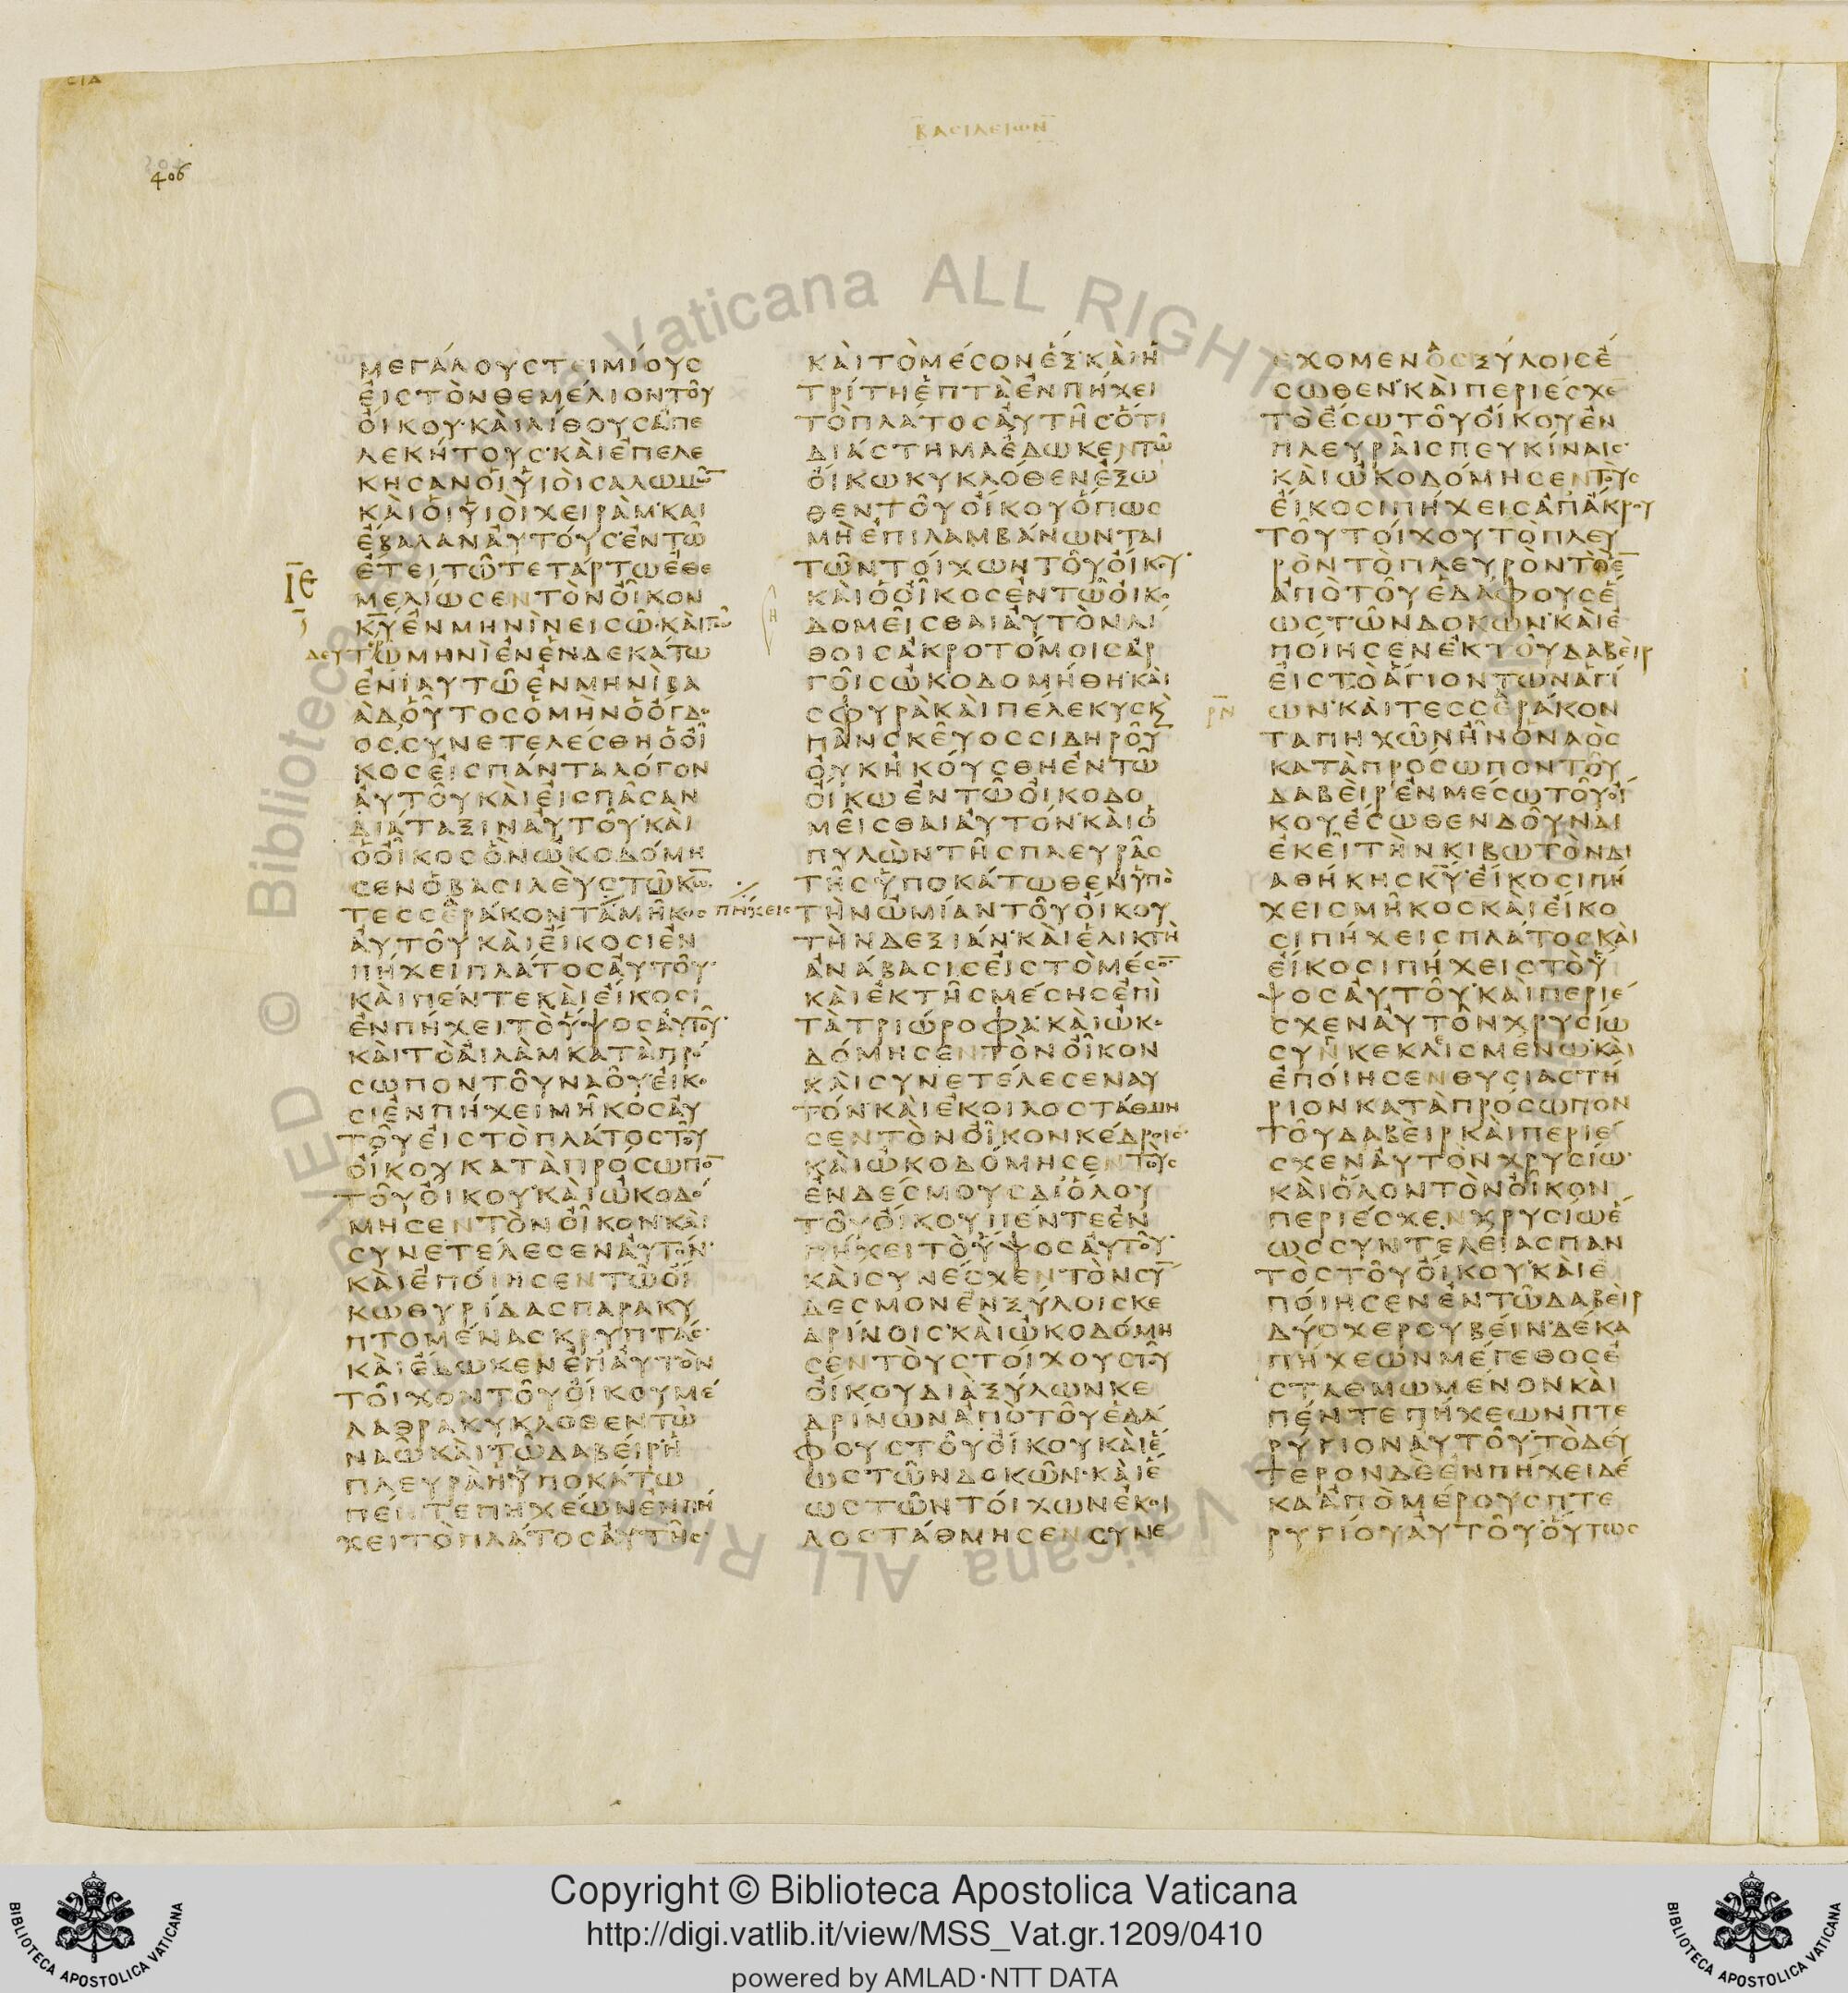 ϹΙΔ
ΒΑϹΙΛΕΙΩΝ
406
ΜΕΓΑΛΟΥϹΤΕΙΜΙΟΥϹ
ΕΙϹΤΟΝΘΕΜΕΛΙΟΝΤΟΥ
ΟΙΚΟΥ·ΚΑΙΛΙΘΟΥϹΑΠΕ
ΛΕΚΗΤΟΥϹ·ΚΑΙΕΠΕΛΕ
ΚΗϹΑΝΟΙΥΙΟΙϹΑΛΩΜΩ̄
ΚΑΙΟΙΥΙΟΙΧΕΙΡΑΜ·ΚΑΙ
ΕΒΑΛΑΝΑΥΤΟΥϹ·ΕΝΤΩ
ΙΕ
ΕΤΕΙΤΩΤΕΤΑΡΤΩΕΘΕ
ΜΕΛΙΩϹΕΝΤΟΝΟΙΚΟΝ
Κ̄Ῡ·ΕΝΜΗΝΙΝΕΙϹΩ·ΚΑΙ
ΔΕΥΤΩΜΗΝΙΕΝΕΝΔΕΚΑΤΩ
ΕΝΙΑΥΤΩΕΝΜΗΝΙΒΑ
ΑΔ·ΟΥΤΟϹΟΜΗΝΟΟΓΔΟ
ΟϹϹΥΝΕΤΕΛΕϹΘΗΟΟΙ
ΚΟϹΕΙϹΠΑΝΤΑΛΟΓΟΝ
ΑΥΤΟΥΚΑΙΕΙϹΠΑϹΑΝ
ΔΙΑΤΑΞΙΝΑΥΤΟΥ·ΚΑΙ
ΟΟΙΚΟϹΟΝΩΚΟΔΟΜΗ
ϹΕΝΟΒΑϹΙΛΕΥϹΤΩΚ̄Ω̄
ΤΕϹϹΕΡΑΚΟΝΤΑΜΗΚΟϹ ΠΗΧΕΙϹ
ΑΥΤΟΥΚΑΙΕΙΚΟϹΙΕΝ
ΠΗΧΕΙΠΛΑΤΟϹΑΥΤΟΥ·
ΚΑΙΠΕΝΤΕΚΑΙΕΙΚΟϹΙ
ΕΝΠΗΧΕΙΤΟΥΨΟϹΑΥΤΟΥ·
ΚΑΙΤΟΑΙΛΑΜΚΑΤΑΠΡΟ
ϹΩΠΟΝΤΟΥΝΑΟΥ·ΕΙΚΟ
ϹΙΕΝΠΗΧΕΙΜΗΚΟϹΑΥ
ΤΟΥΕΙϹΤΟΠΛΑΤΟϹΤΟΥ
ΟΙΚΟΥΚΑΤΑΠΡΟϹΩΠΟ̄
ΤΟΥΟΙΚΟΥ·ΚΑΙΩΚΟΔΟ
ΜΗϹΕΝΤΟΝΟΙΚΟΝ·ΚΑΙ
ϹΥΝΕΤΕΛΕϹΕΝΑΥΤΟΝ·
ΚΑΙΕΠΟΙΗϹΕΝΤΩΟΙ
ΚΩΘΥΡΙΔΑϹΠΑΡΑΚΥ
ΠΤΟΜΕΝΑϹΚΡΥΠΤΑϹ·
ΚΑΙΕΔΩΚΕΝΕΠΑΥΤΟΝ
ΤΟΙΧΟΝΤΟΥΟΙΚΟΥΜΕ
ΛΑΘΡΑΚΥΚΛΟΘΕΝΤΩ
ΝΑΩΚΑΙΤΩΔΑΒΕΙΡ·Η
ΠΛΕΥΡΑΗΥΠΟΚΑΤΩ
ΠΕΝΤΕΠΗΧΕΩΝΕΝΠΗ
ΧΕΙΤΟΠΛΑΤΟϹΑΥΤΗϹ·
ΚΑΙΤΟΜΕϹΟΝΕΞ·ΚΑΙΗ
ΤΡΙΤΗΕΠΤΑΕΝΠΗΧΕΙ
ΤΟΠΛΑΤΟϹΑΥΤΗϹ·ΟΤΙ
ΔΙΑϹΤΗΜΑΕΔΩΚΕΝΤΩ
ΟΙΚΩΚΥΚΛΟΘΕΝΕΞΩ
ΘΕΝΤΟΥΟΙΚΟΥΟΠΩϹ
ΜΗΕΠΙΛΑΜΒΑΝΩΝΤΑΙ
ΤΩΝΤΟΙΧΩΝΤΟΥΟΙΚΟΥ·
ΚΑΙΟΟΙΚΟϹΕΝΤΩΟΙΚΟ
ΔΟΜΕΙϹΘΑΙΑΥΤΟΝΛΙ
ΘΟΙϹΑΚΡΟΤΟΜΟΙϹΑΡ
ΓΟΙϹΩΚΟΔΟΜΗΘΗ·ΚΑΙ
ϹΦΥΡΑΚΑΙΠΕΛΕΚΥϹΚ
ΠΑΝϹΚΕΥΟϹϹΙΔΗΡΟῩ
ΟΥΚΗΚΟΥϹΘΗΕΝΤΩ
ΟΙΚΩΕΝΤΩΟΙΚΟΔΟ
ΜΕΙϹΘΑΙΑΥΤΟΝ·ΚΑΙΟ
ΠΥΛΩΝΤΗϹΠΛΕΥΡΑϹ
ΤΗϹΥΠΟΚΑΤΩΘΕΝΥΠΟ
ΤΗΝΩΜΙΑΝΤΟΥΟΙΚΟΥ
ΤΗΝΔΕΞΙΑΝ·ΚΑΙΕΛΙΚΤΗ
ΑΝΑΒΑϹΙϹΕΙϹΤΟΜΕϹΟ̄
ΚΑΙΕΚΤΗϹΜΕϹΗϹΕΠΙ
ΤΑΤΡΙΩΡΟΦΑ·ΚΑΙΩΚΟ
ΔΟΜΗϹΕΝΤΟΝΟΙΚΟΝ
ΚΑΙϹΥΝΕΤΕΛΕϹΕΝΑΥ
ΤΟΝ·ΚΑΙΕΚΟΙΛΟϹΤΑΘΜΗ
ϹΕΝΤΟΝΟΙΚΟΝΚΕΔΡΟΙϹ·
ΚΑΙΩΚΟΔΟΜΗϹΕΝΤΟΥϹ
ΕΝΔΕϹΜΟΥϹΔΙΟΛΟΥ
ΤΟΥΟΙΚΟΥΠΕΝΤΕΕΝ
ΠΗΧΕΙΤΟΥΨΟϹΑΥΤΟΥ·
ΚΑΙϹΥΝΕϹΧΕΝΤΟΝϹῩ
ΔΕϹΜΟΝΕΝΞΥΛΟΙϹΚΕ
ΔΡΙΝΟΙϹ·ΚΑΙΩΚΟΔΟΜΗ
ϹΕΝΤΟΥϹΤΟΙΧΟΥϹΤΟΥ
ΟΙΚΟΥΔΙΑΞΥΛΩΝΚΕ
ΔΡΙΝΩΝΑΠΟΤΟΥΕΔΑ
ΦΟΥϹΤΟΥΟΙΚΟΥΚΑΙΕ
ΩϹΤΩΝΔΟΚΩΝ·ΚΑΙΕ
ΩϹΤΩΝΤΟΙΧΩΝΕΚΟΙ
ΛΟϹΤΑΘΜΗϹΕΝϹΥΝΕ
ΕΧΟΜΕΝΟϹΞΥΛΟΙϹΕ
ϹΩΘΕΝ·ΚΑΙΠΕΡΙΕϹΧΕ
ΤΟΕϹΩΤΟΥΟΙΚΟΥΕΝ
ΠΛΕΥΡΑΙϹΠΕΥΚΙΝΑΙϹ·
ΚΑΙΩΚΟΔΟΜΗϹΕΝΤΟΥϹ
ΕΙΚΟϹΙΠΗΧΕΙϹΑΠΑΚΡΟΥ
ΤΟΥΤΟΙΧΟΥΤΟΠΛΕΥ
ΡΟΝΤΟΠΛΕΥΡΟΝΤΟΕ̄
ΑΠΟΤΟΥΕΔΑΦΟΥϹΕ
ΩϹΤΩΝΔΟΚΩΝ·ΚΑΙΕ
ΠΟΙΗϹΕΝΕΚΤΟΥΔΑΒΕΙΡ
ΕΙϹΤΟΑΓΙΟΝΤΩΝΑΓΙ
ΩΝ·ΚΑΙΤΕϹϹΕΡΑΚΟΝ
ΤΑΠΗΧΩΝΗΝΟΝΑΟϹ
ΚΑΤΑΠΡΟϹΩΠΟΝΤΟΥ
ΔΑΒΕΙΡ·ΕΝΜΕϹΩΤΟΥΟΙ
ΚΟΥΕϹΩΘΕΝΔΟΥΝΑΙ
ΕΚΕΙΤΗΝΚΙΒΩΤΟΝΔΙ
ΑΘΗΚΗϹΚ̄Ῡ·ΕΙΚΟϹΙΠΗ
ΧΕΙϹΜΗΚΟϹΚΑΙΕΙΚΟ
ϹΙΠΗΧΕΙϹΠΛΑΤΟϹΚΑΙ
ΕΙΚΟϹΙΠΗΧΕΙϹΤΟΥ
ΨΟϹΑΥΤΟΥ·ΚΑΙΠΕΡΙΕ
ϹΧΕΝΑΥΤΟΝΧΡΥϹΙΩ
ϹΥΝΚΕΚΛΕΙϹΜΕΝΩ·ΚΑΙ
ΕΠΟΙΗϹΕΝΘΥϹΙΑϹΤΗ
ΡΙΟΝΚΑΤΑΠΡΟϹΩΠΟΝ
ΤΟΥΔΑΒΕΙΡΚΑΙΠΕΡΙΕ
ϹΧΕΝΑΥΤΟΝΧΡΥϹΙΩ·
ΚΑΙΟΛΟΝΤΟΝΟΙΚΟΝ
ΠΕΡΙΕϹΧΕΝΧΡΥϹΙΩΕ
ΩϹϹΥΝΤΕΛΕΙΑϹΠΑΝ
ΤΟϹΤΟΥΟΙΚΟΥ·ΚΑΙΕ
ΠΟΙΗϹΕΝΕΝΤΩΔΑΒΕΙΡ
ΔΥΟΧΕΡΟΥΒΕΙΝ·ΔΕΚΑ
ΠΗΧΕΩΝΜΕΓΕΘΟϹΕ
ϹΤΑΘΜΩΜΕΝΟΝΚΑΙ
ΠΕΝΤΕΠΗΧΕΩΝΠΤΕ
ΡΥΓΙΟΝΑΥΤΟΥ·ΤΟΔΕΥ
ΤΕΡΟΝΔΕΕΝΠΗΧΕΙΔΕ
ΚΑΑΠΟΜΕΡΟΥϹΠΤΕ
ΡΥΓΙΟΥΑΥΤΟΥ·ΟΥΤΩϹ
© Biblioteca Vaticana ALL RIGHT
Copyright © Biblioteca Apostolica Vaticana
http://digi.vatlib.it/view/MSS_Vat.gr.1209/0410
powered by AMLAD·NTT DATA
BIBLIOTECA APOSTOLICA VATICANA
BIBLIOTECA APOSTOLICA VATICANA